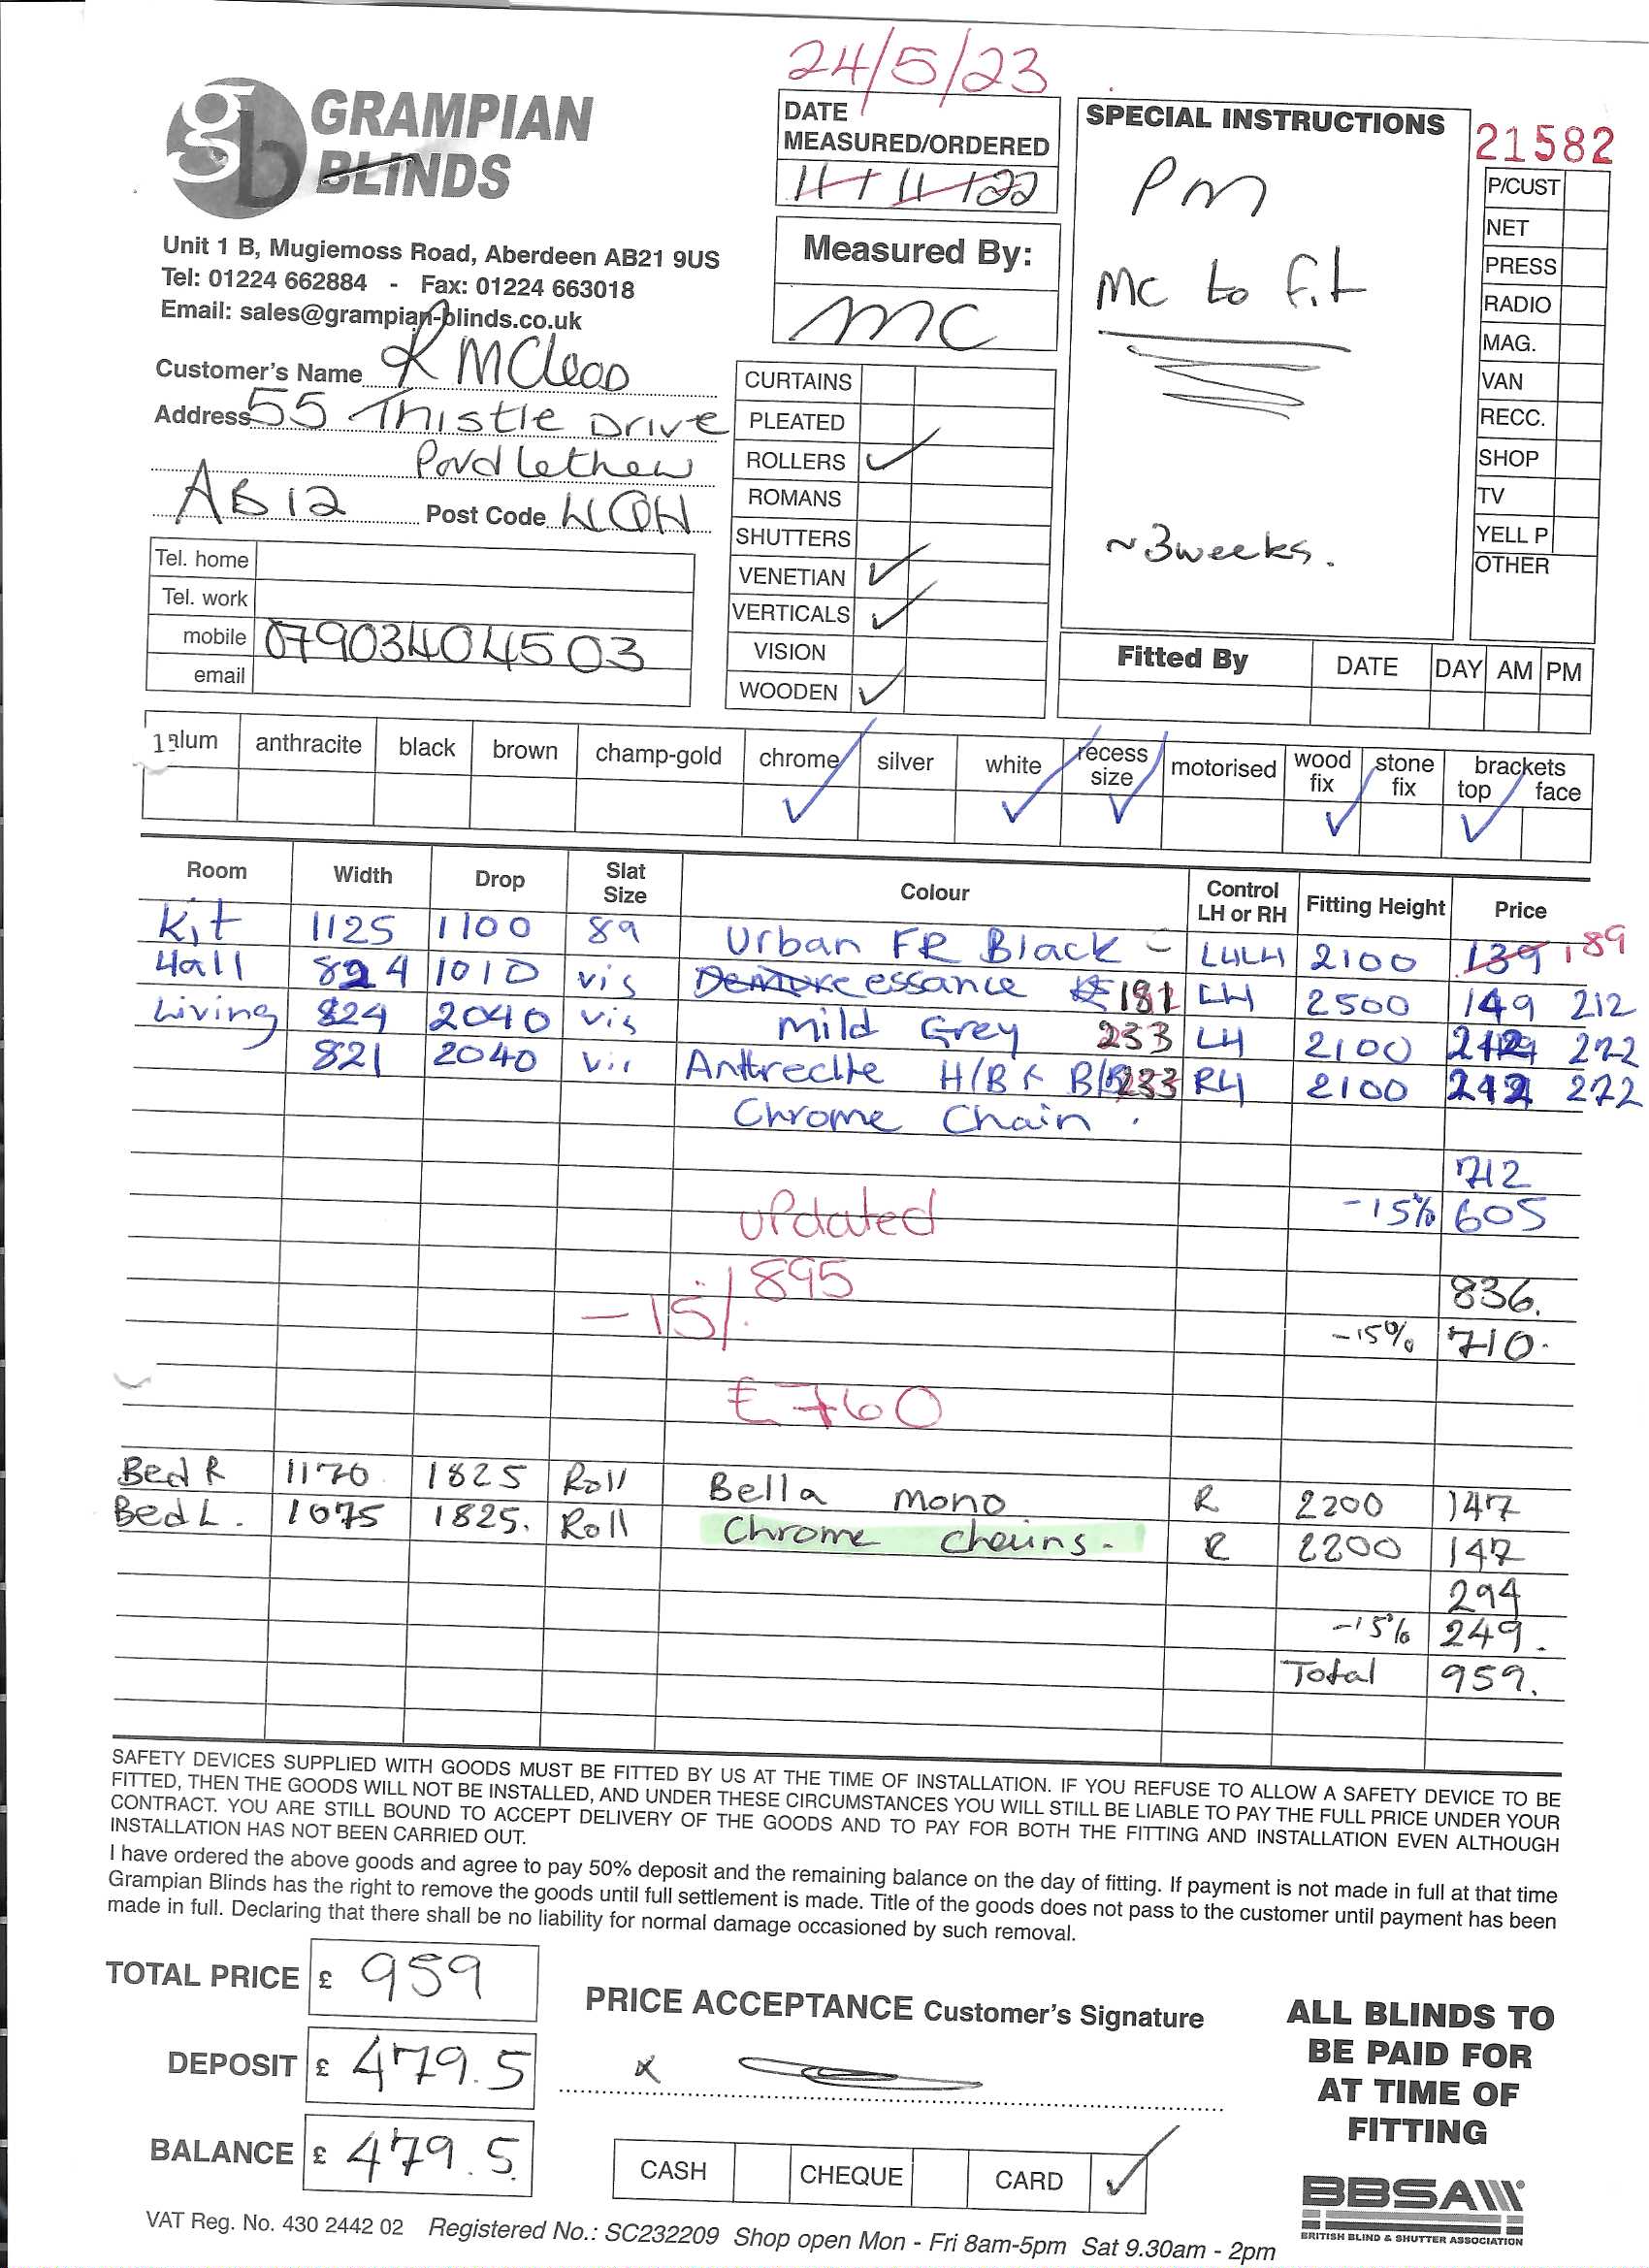 24/5/23
gb GRAMPIAN
BLINDS
Unit 1 B, Mugiemoss Road, Aberdeen AB21 9US
Tel: 01224 662884 - Fax: 01224 663018
Email: sales@grampian-blinds.co.uk
Customer's Name R McLeod
Address 55 Thistle Drive
Portlethen
AB12 Post Code
Tel. home
Tel. work
mobile 07903404503
email
DATE
MEASURED/ORDERED
11/11/22
Measured By:
MC
CURTAINS
PLEATED
ROLLERS ✓
ROMANS
SHUTTERS
VENETIAN ✓
VERTICALS ✓
VISION
WOODEN ✓
SPECIAL INSTRUCTIONS
PM
MC to fit
~3weeks.
21582
P/CUST
NET
PRESS
RADIO
MAG.
VAN
RECC.
SHOP
TV
YELL P
OTHER
Fitted By DATE DAY AM PM
alum anthracite black brown champ-gold chrome ✓ silver white ✓ recess size ✓ motorised wood fix ✓ stone fix brackets top ✓ face
Room Width Drop Slat Size Colour Control LH or RH Fitting Height Price
Kit 1125 1100 89 Urban FR Black - LHLH 2100 139 189
Hall 824 1010 vis essance 181 LH 2500 149 212
Living 824 2040 vis Mild Grey 233 LH 2100 222
821 2040 vis H/B & 233 RH 2100 242 272
Chrome Chain.
712
-15% 605
updated
895
-15%
836.
-15% 710.
£760
Bed R 1170 1825 Roll Bella Mono R 2200 147
Bed L. 1075 1825. Roll Chrome Chains. R 2200 147
294
-15% 249.
Total 959.
SAFETY DEVICES SUPPLIED WITH GOODS MUST BE FITTED BY US AT THE TIME OF INSTALLATION. IF YOU REFUSE TO ALLOW A SAFETY DEVICE TO BE
FITTED, THEN THE GOODS WILL NOT BE INSTALLED, AND UNDER THESE CIRCUMSTANCES YOU WILL STILL BE LIABLE TO PAY THE FULL PRICE UNDER YOUR
CONTRACT. YOU ARE STILL BOUND TO ACCEPT DELIVERY OF THE GOODS AND TO PAY FOR BOTH THE FITTING AND INSTALLATION EVEN ALTHOUGH
INSTALLATION HAS NOT BEEN CARRIED OUT.
I have ordered the above goods and agree to pay 50% deposit and the remaining balance on the day of fitting. If payment is not made in full at that time
Grampian Blinds has the right to remove the goods until full settlement is made. Title of the goods does not pass to the customer until payment has been
made in full. Declaring that there shall be no liability for normal damage occasioned by such removal.
TOTAL PRICE £ 959
DEPOSIT £ 479.5
BALANCE £ 479.5.
PRICE ACCEPTANCE Customer's Signature
x
CASH CHEQUE CARD ✓
ALL BLINDS TO
BE PAID FOR
AT TIME OF
FITTING
BBSA
BRITISH BLIND & SHUTTER ASSOCIATION
VAT Reg. No. 430 2442 02 Registered No.: SC232209 Shop open Mon - Fri 8am-5pm Sat 9.30am - 2pm